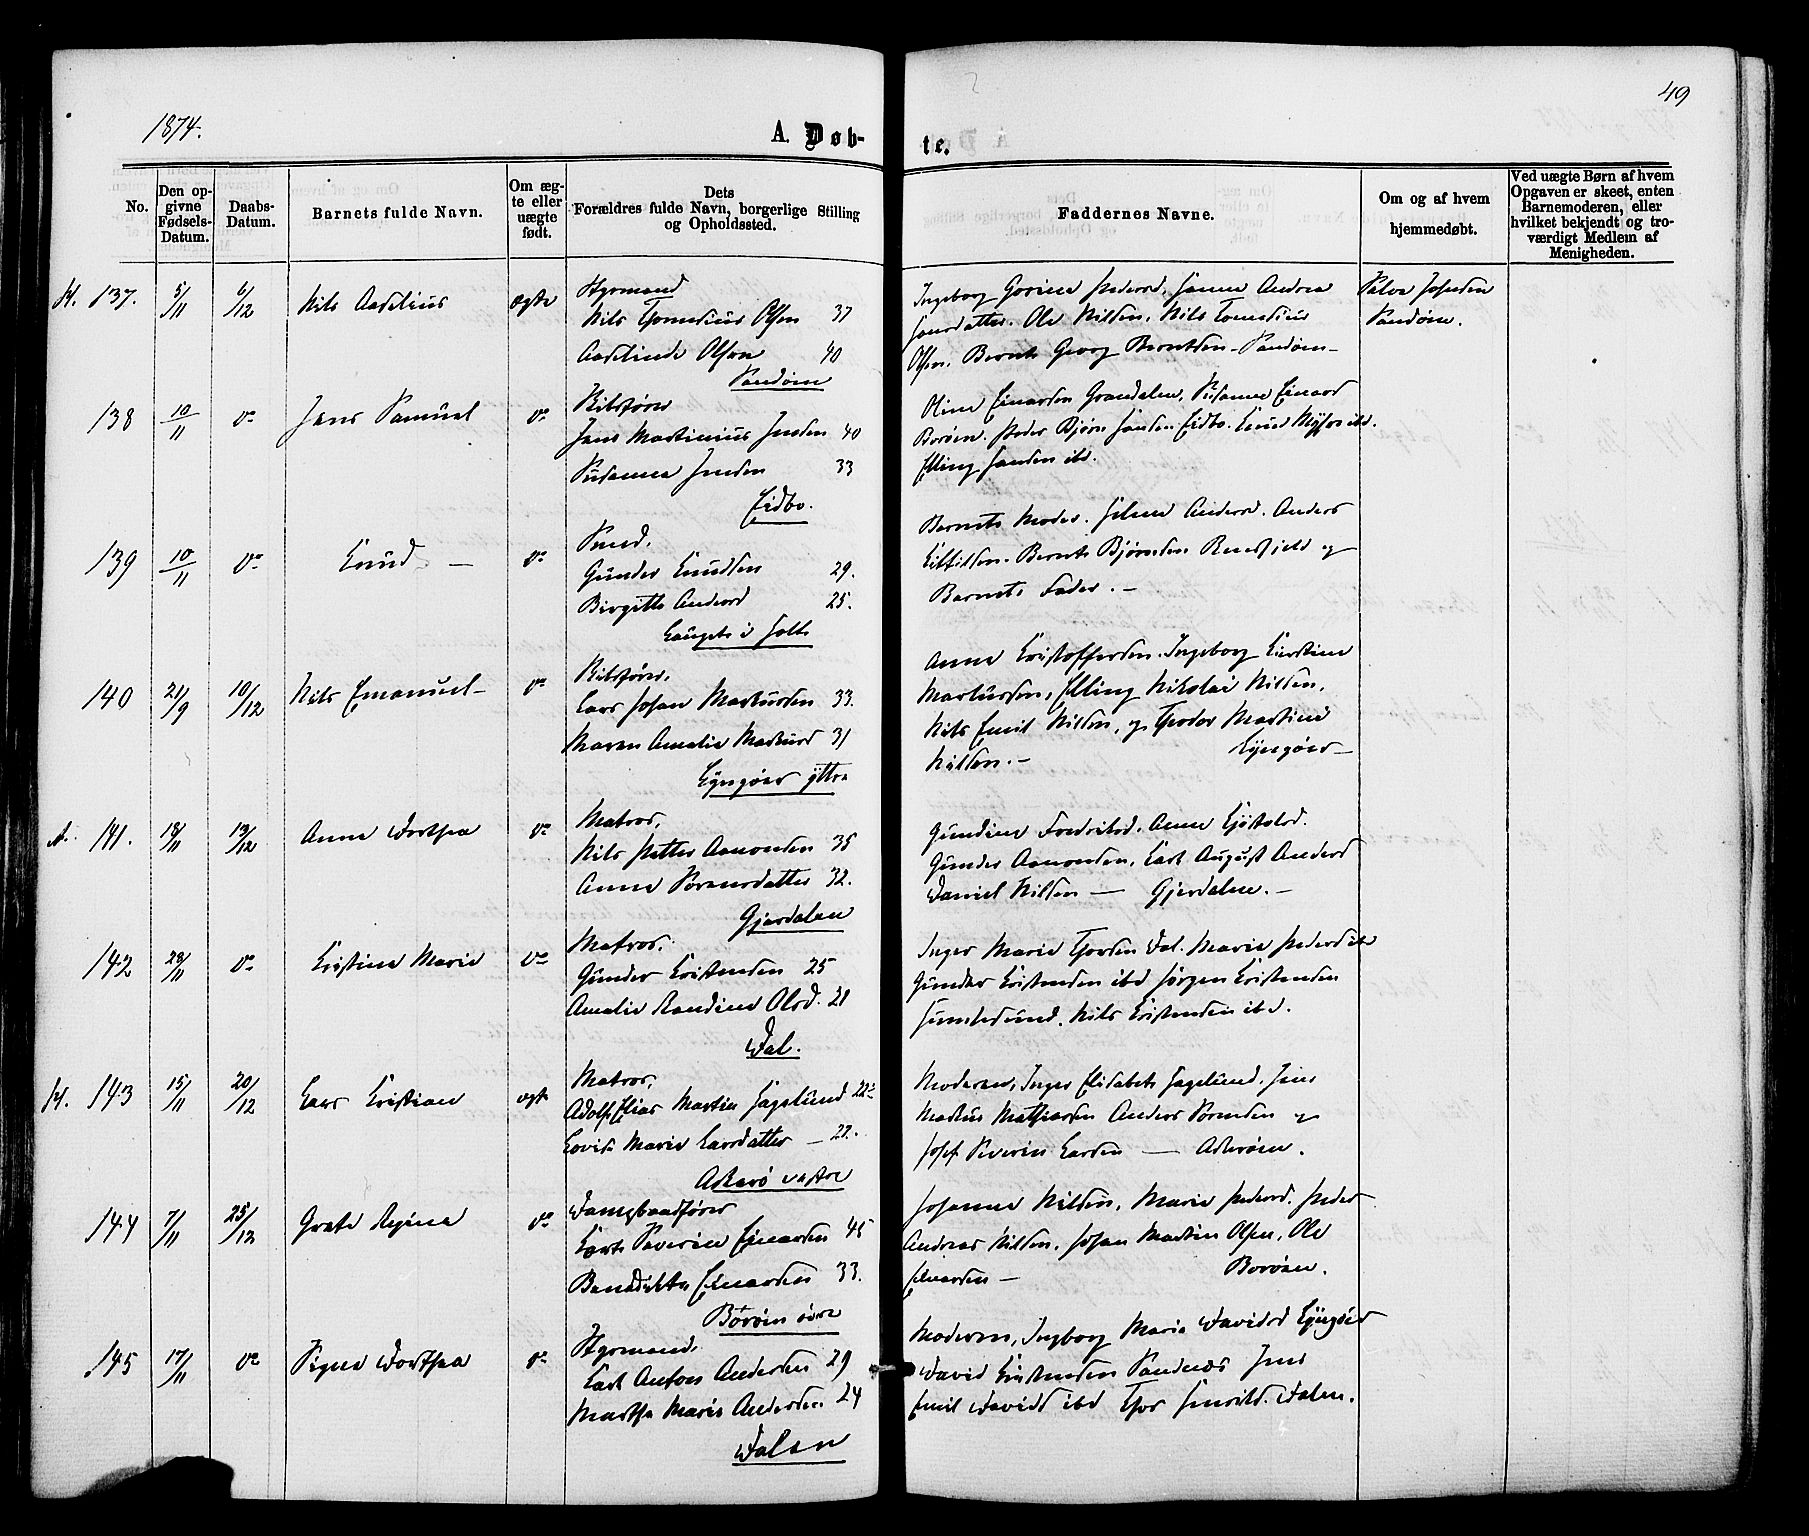 49
1874.
A. Døb-
te.
No.
Den op-
givne
Fødsels-
Datum.
Daabs-
Datum.
Barnets fulde Navn.
Om æg-
te eller
uægte
født.
Dets
Forældres fulde Navn, borgerlige Stilling
og Opholdssted.
Faddernes Navne.
Om og af hvem
hjemmedøbt.
Ved uægte Børn af hvem
Opgaven er skeet, enten
Barnemoderen, eller
hvilket bekjendt og tro-
værdigt Medlem af
Menigheden.
137. 5/11 6/12 Nils Aadelius ægte Styrmand
Nils Tomelius Olsen 37
Aadelinde Olsen 40
Sandøen
Ingeborg Gorine Pedersd, Hanne Andrea
Hansdatter. Ole Nilsen, Nils Tomelius
Olsen. Bernt Georg Berntsen - Sandøen -
Salve Josnsen
Sandøen.
138 10/11 do Jens Samuel do Skibsfører
Jens Martinius Jensen 40
Susanna Jensen 33
Eidbo.
Oline Einarsen Grændalen, Susanne Einars
Borøen. Peder Bjørn Hansen Eidbo. Knud Myhre ibd.
Elling Hansen ibd.
139 10/11 do Knud - do Smed.
Gunder Knudsen 29.
Birgitte Andersd 25.
Laget i Holt
Barnets Moder. Helene Andersd. Anders
Kittilsen. Bernt Bjørnsen Rensfjeld og
Barnets Fader. -
140 21/9 10/12 Nils Emanuel - do Skibsfører,
Lars Johan Markussen 33.
Maren Amalie Markus 31
Lyngøer yttre
Anne Kristoffersen. Ingeborg Kirstine
Markussen, Elling Nikolai Nilsen,
Nils Emil Nilsen, og Theodor Martinius
Nilsen. - Lyngøer -
141. 18/11 13/12 Anne Dorthea do Matros,
Nils Petter Aamonsen 35
Anne Sørensdatter 32.
Gjerdalen
Gundine Fredriksd. Anne Kjøstolsd.
Gunder Aamonsen, Karl August Anders
Daniel Nilsen - Gjerdalen. -
142 28/11 do Kristine Marie do Matros,
Gunder Kristensen 25
Amalie Randine Olsd. 21
Dal.
Inger Marie Thorsen Dal. Marie Pedersd ibd
Gunder Kristensen ibd Jørgen Kristensen
Humlesund. Nils Kristensen ibd.
143 15/11 20/12 Lars Kristian ægte Matros,
Adolf Elias Martin Hagelund 22½
Lovise Marie Larsdatter - 22.
Askerø vestre
Moderen, Inger Elisabeth Hagelund. Jens
Markus Mathiassen Anders Sørensen og
Josef Severin Larsen - Askerøen.
144 7/11 25/12 Grete Regine do Dampbaadfører
Lars Severin Einarsen 45
Benedikte Einarsen 33.
Borøen øvre
Johanne Nilsen, Marie Pedersd. Peder
Andreas Nilsen. Johan Martin Olsen, Ole
Einarsen - Borøen.
145 17/11 do Signe Dorthea do Styrmand,
Karl Anton Andersen 29
Martha Marie Andersen 24
Dalen
Moderen, Ingborg Marie Davidsd Lyngør
David Kristensen Sandnes Jens
Emil Davids ibd Thor Henriks. Dalen.